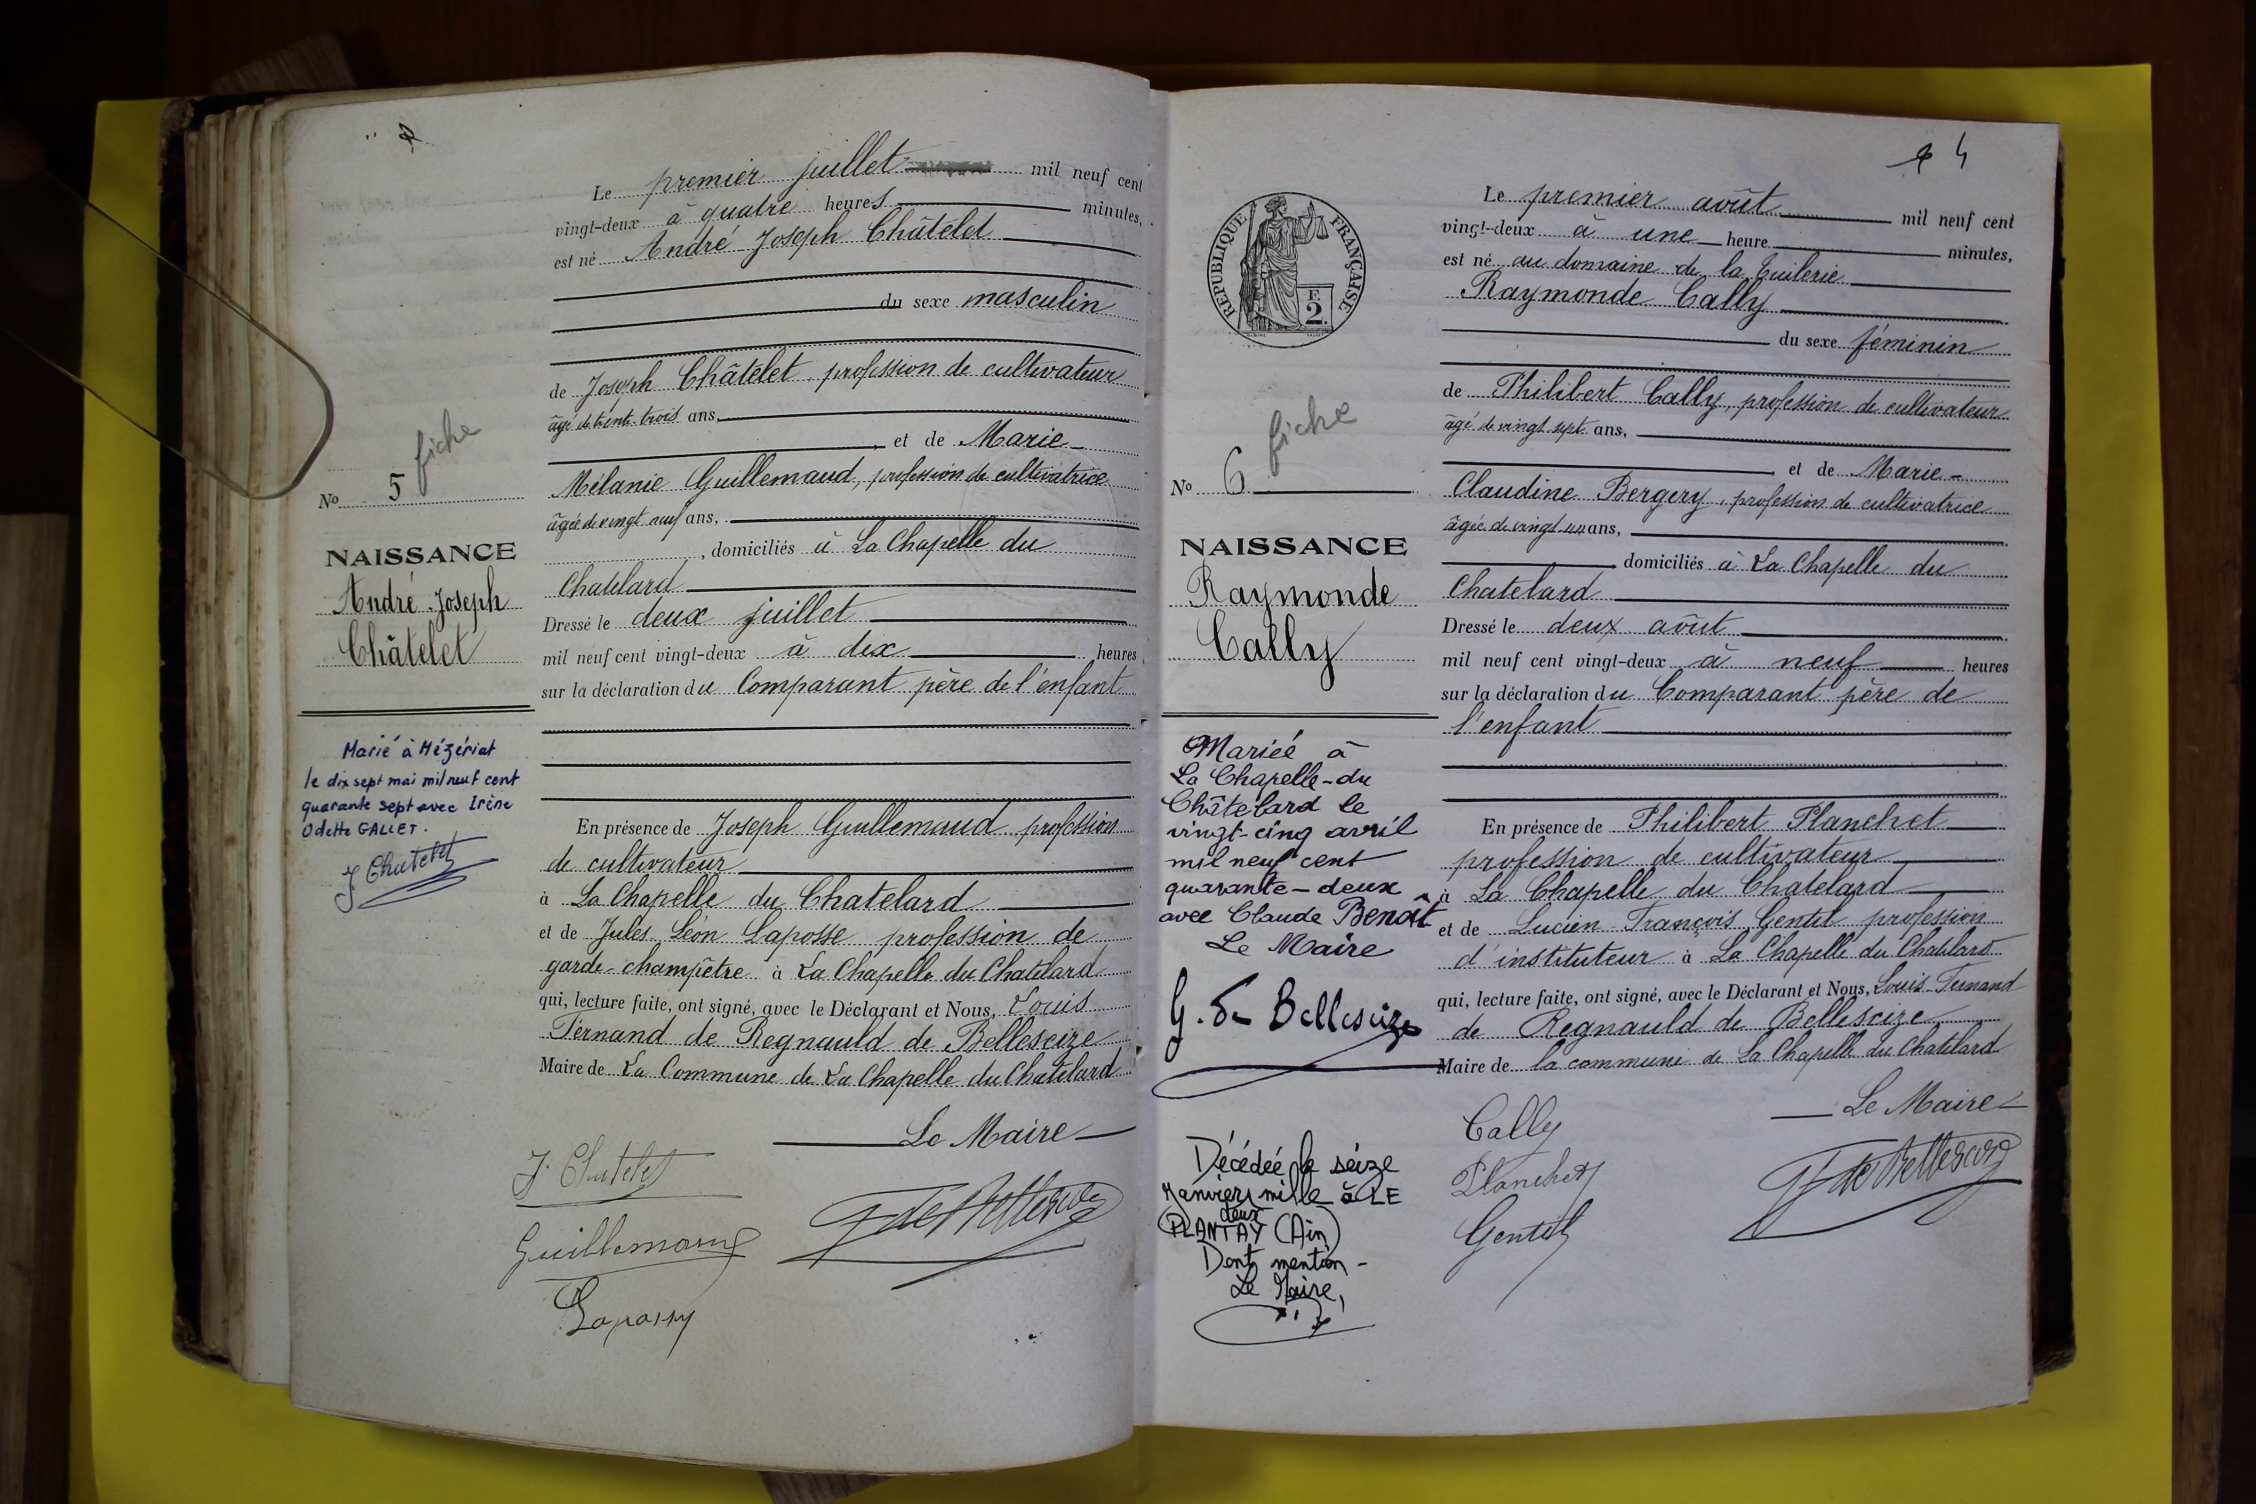 Le premier juillet mil neuf cent
vingt-deux à quatre heures minutes,
est né André Joseph Châtelet
du sexe masculin
de Joseph Châtelet, profession de cultivateur
âgé de trente trois ans,
et de Marie-
Mélanie Guillemaud, profession de cultivatrice
âgée de vingt neuf ans,
, domiciliés à La Chapelle du
Chatelard
Dressé le deux juillet
mil neuf cent vingt-deux à dix heures
sur la déclaration du Comparant père de l'enfant
En présence de Joseph Guillemaud profession
de cultivateur
à La Chapelle du Chatelard
et de Jules Léon Laposse profession de
garde-champêtre à La Chapelle du Chatelard
qui, lecture faite, ont signé, avec le Déclarant et Nous, Louis
Fernand de Regnauld de Belleseize
Maire de La Commune de La Chapelle du Chatelard
Le Maire
J. Chatelet
Guillemaud
fiche
No 5
NAISSANCE
André Joseph
Châtelet
Marié à Mézériat
le dix sept mai mil neuf cent
quarante sept avec Irène
Odette GALLET.
J Chatelet
4
RÉPUBLIQUE FRANÇAISE
F.
2.
fiche
No 6
NAISSANCE
Raymonde
Cally
Mariée à
La Chapelle-du
Châtelard le
vingt-cinq avril
mil neuf cent
quarante-deux
avec Claude Benoît
Le Maire
G. de Belleseize
Décédée le seize
janvier deux mille à LE
PLANTAY (Ain)
Dont mention-
Le Maire,
Le premier août mil neuf cent
vingt-deux à une heure minutes,
est né au domaine de la Tuilerie
Raymonde Cally
du sexe féminin
de Philibert Cally, profession de cultivateur
âgé de vingt sept ans,
et de Marie-
Claudine Bergery, profession de cultivatrice
âgée de vingt un ans,
domiciliés à La Chapelle du
Chatelard
Dressé le deux août
mil neuf cent vingt-deux à neuf heures
sur la déclaration du Comparant père de
l'enfant
En présence de Philibert Planchet
profession de cultivateur
à La Chapelle du Chatelard
et de Lucien François Gentil profession
d'instituteur à La Chapelle du Chatelard
qui, lecture faite, ont signé, avec le Déclarant et Nous, Louis-Fernand
de Regnauld de Belleseize
Maire de la commune de La Chapelle du Chatelard
Le Maire
Cally
Planchet
Gentil